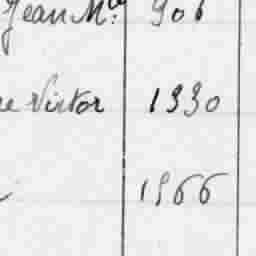 Jean Mce. 906
re Victor 1930
1966